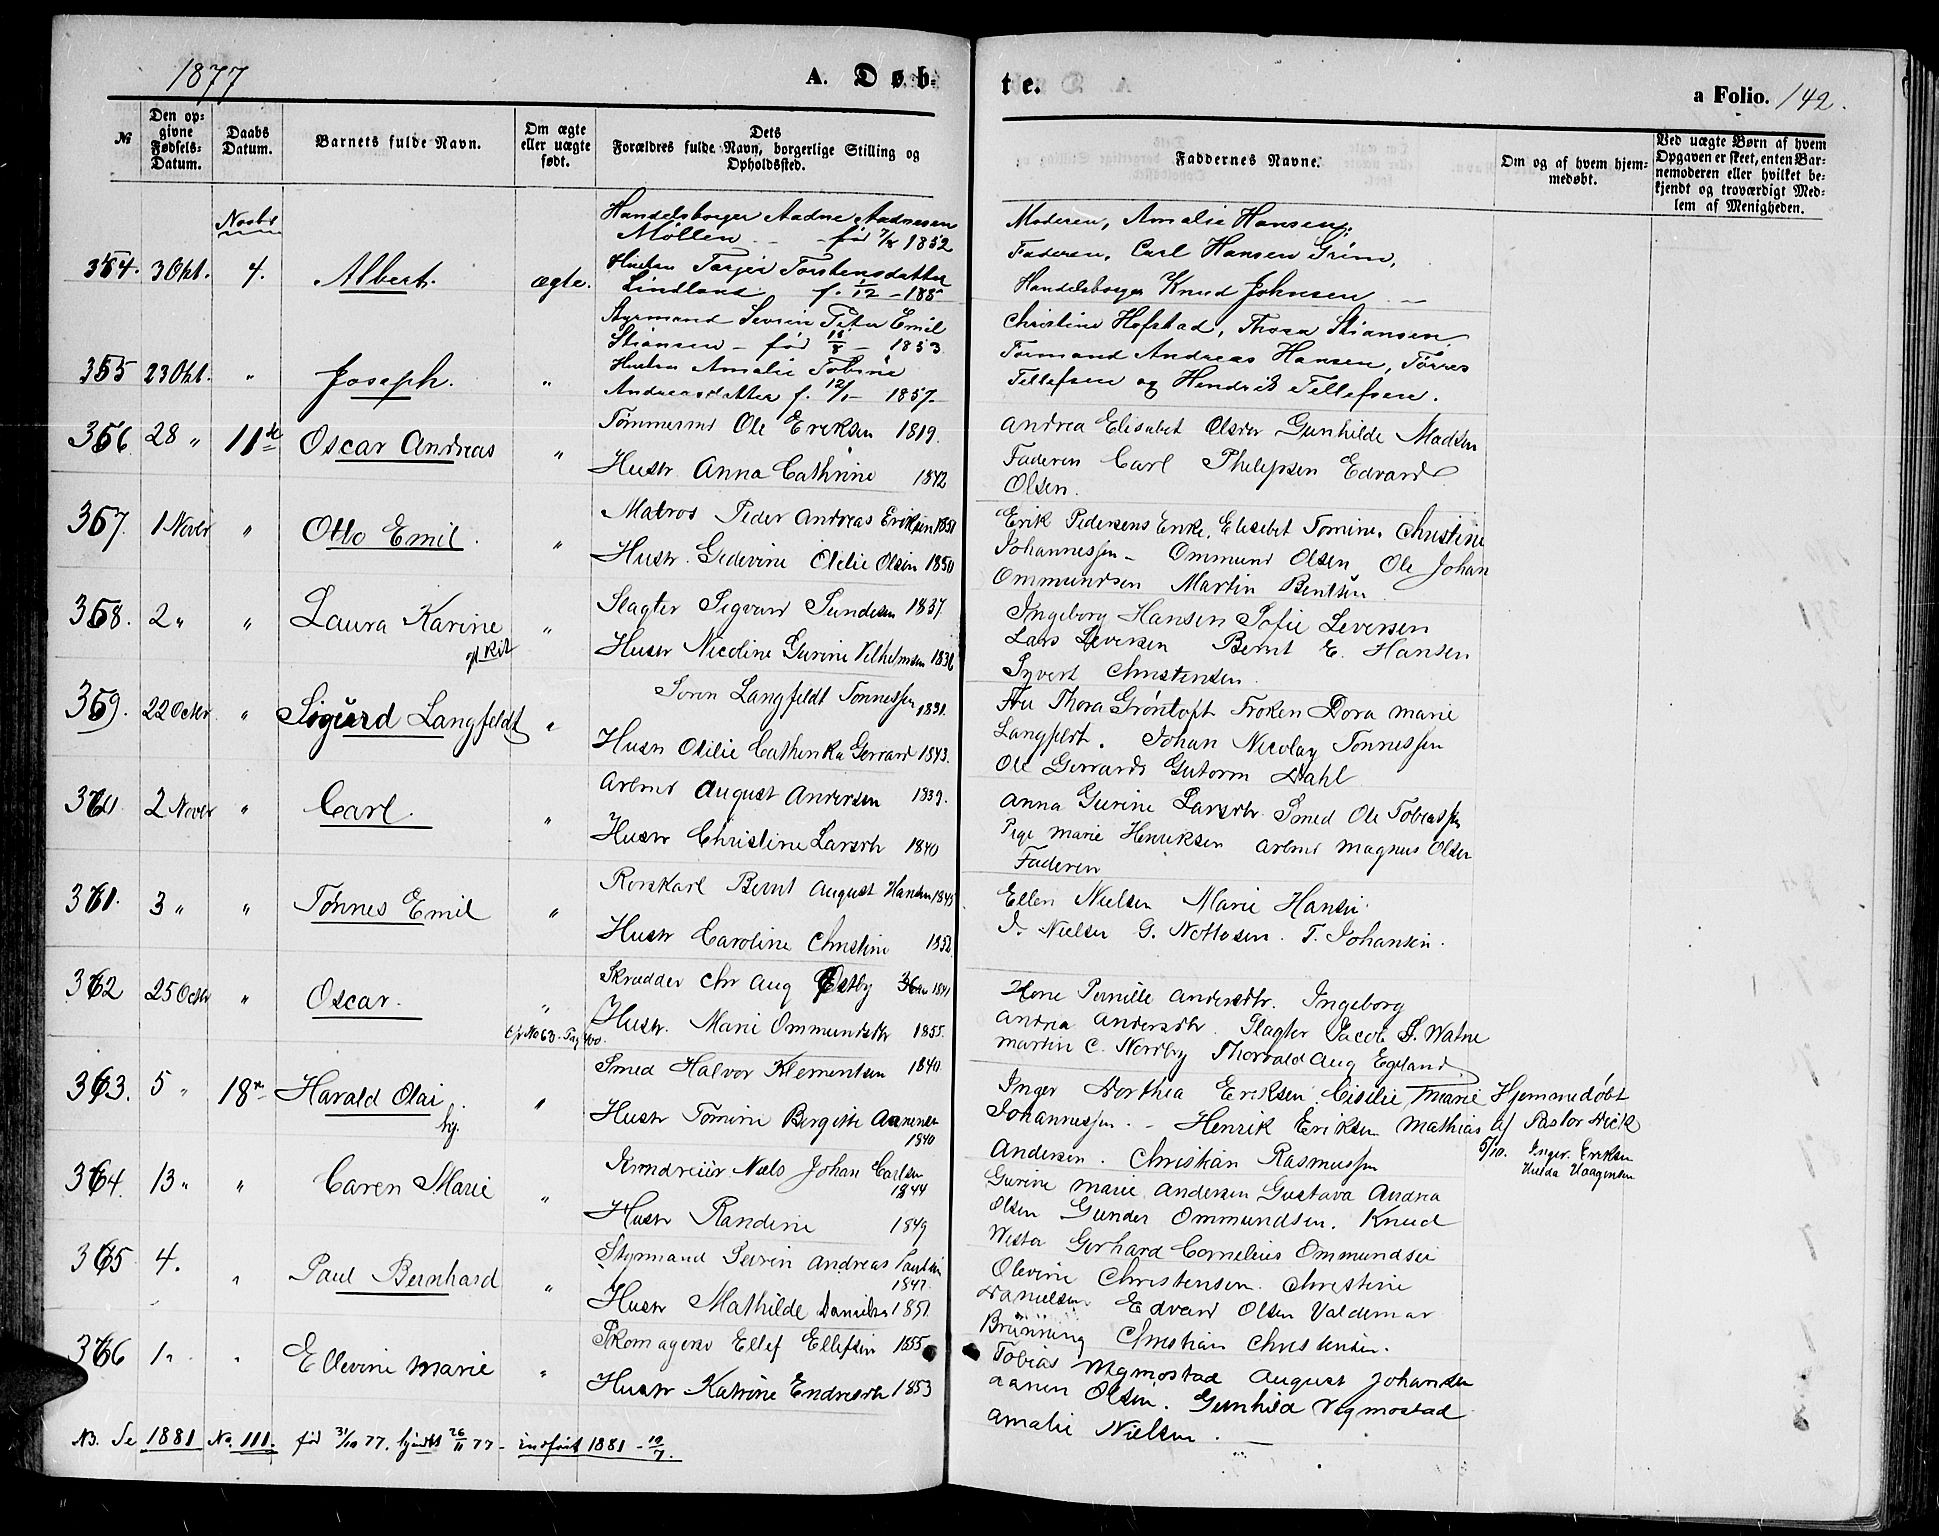 1877
A. Døb-
te.
a Folio. 142.
№
Den op-
givne
Fødsels-
Datum.
Daabs
Datum.
Barnets fulde Navn.
Om ægte
eller uægte
født.
Dets
Forældres fulde Navn, borgerlige Stilling og
Opholdssted.
Faddernes Navne.
Om og af hvem hjem-
medøbt.
Ved uægte Børn af hvem
Opgaven er skeet, enten Bar-
nemoderen eller hvilket be-
kjendt og troværdigt Med-
lem af Menigheden.
Novbr
354. 3 Okt. 4. Albert. ægte.
Handelsborger Aadne Aadnesen
Møllen født 1852
Hustru Tarjer Torstensdatter
Lindland f.
Moderen, Amalie Hansen,
Faderen, Carl Hansen Grim,
Handelsborger Knud Johnsen
355 23 Okt. " Joseph. "
Styrmand Severin Peter Emil
Stiansen - født 1853
Hustru Amalie Tobine
Andreasdatter f. 12/1 - 1857
Christine Hofstad, Thora Stiansen
Tømmand Andreas Hansen, Tørres
Tellefsen og Hendrik Tellefsen.
356 28 " 11te Oscar Andreas "
Tømmermd Ole Eriksen 1819.
Hustr Anna Cathrine 1842
Andrea Elisabet Olsdtr Gunhilde Madsen
Faderen Carl Philipsen Edvard
Olsen.
357. 1 Novbr " Otto Emil. "
Matros Peder Andreas Eriksen 1851
Hustr. Gedevine Otilie Olsen 1850
Erik Pedersens Enke, Elisabet Tomine. Christine
Johannessen - Ommund Olsen Ole Johan
Ommundsen Martin Bentsen
358. 2 " " Laura Karine "
Slagter Sigvard Sundesen 1837
Hustr Nicoline Gurine Vilhelmsen 1836
Ingeborg Hansen Sofie Seversen
Lars Seversen Bernt E. Hansen
Syvert Christensen
359. 22 Octbr " Sigurd Langfeldt "
Søren Langfeldt Tønnessen 1831.
Hustr Otilie Cathinka Gerrard 1843.
Fru Thora Grøntoft Frøken Dora Marie
Langfeldt. Johan Nicolay Tønnessen
Ole Gerrards Gutorm Dahl
360 2 Novbr " Carl. "
Arbmd August Andersen 1839.
Hustr Christine Larsdtr 1840
Anna Gurine Larsdtr. Smed Ole Tobiassen
Pige Marie Henriksen Arbmd Magnus Olsen
Faderen
361. 3 " " Tønnes Emil "
Rorskarl Bernt August Hansen 1845
Hustr Caroline Christine 1852
Ellen Nielsen Marie Hansen
J. Nielsen G. Nottosen. T. Johansen.
362 25 Octbr " Oscar. "
Skrædder Chr Aug Østby 1841
Hustr. Marie Ommundsdtr 1855.
Kone Pernille Andersdtr. Ingeborg
Andrea Andersdtr. Slagter Jacob S. Watne
Martin C. Nordby Thorvald Aug Egeland
363. 5 " 18n Harald Olai "
hj.
Smed Halvor Klementsen 1840
Hustr Tomine Birgitte Aanensen
1840
Inger Dorthea Eriksen. Cisilie Marie
Johannessen. - Henrik Eriksen Mathias
Andersen. Christian Rasmussen
Hjemmedøbt
af Pastor Dick
Inger Eriksen
Hulda Haagensen
364. 13 " " Caren Marie "
Konditor Niels Johan Carlsen
1844
Hustr Randine 1849
Gurine Marie Andersen Gustava Andrea
Olsen Gunder Ommundsen. Knud
Wester Gerhard Cornelius Ommundsen
365 4. " Paul Bernhard "
Styrmand Severin Andreas Paulsen
1847
Hustr Mathilde Danielsen 1851
Olevine Christensen. Christine
Danielsen Edvard Olsen Valdemar
Brünning Christian Christensen.
366 1 " " Ellevine Marie "
Skomager Ellef Ellefsen 1855
Hustr Katrine Endresdtr 1853
Tobias Vegmostad August Johansen
Aanen Olsen. Gunhild Vegmostad
Amalie Nielsen.
NB. Se 1881 No. 111. født 31/10 77. hjdøbt 26/11 77 - indført 1881 - 10/7.